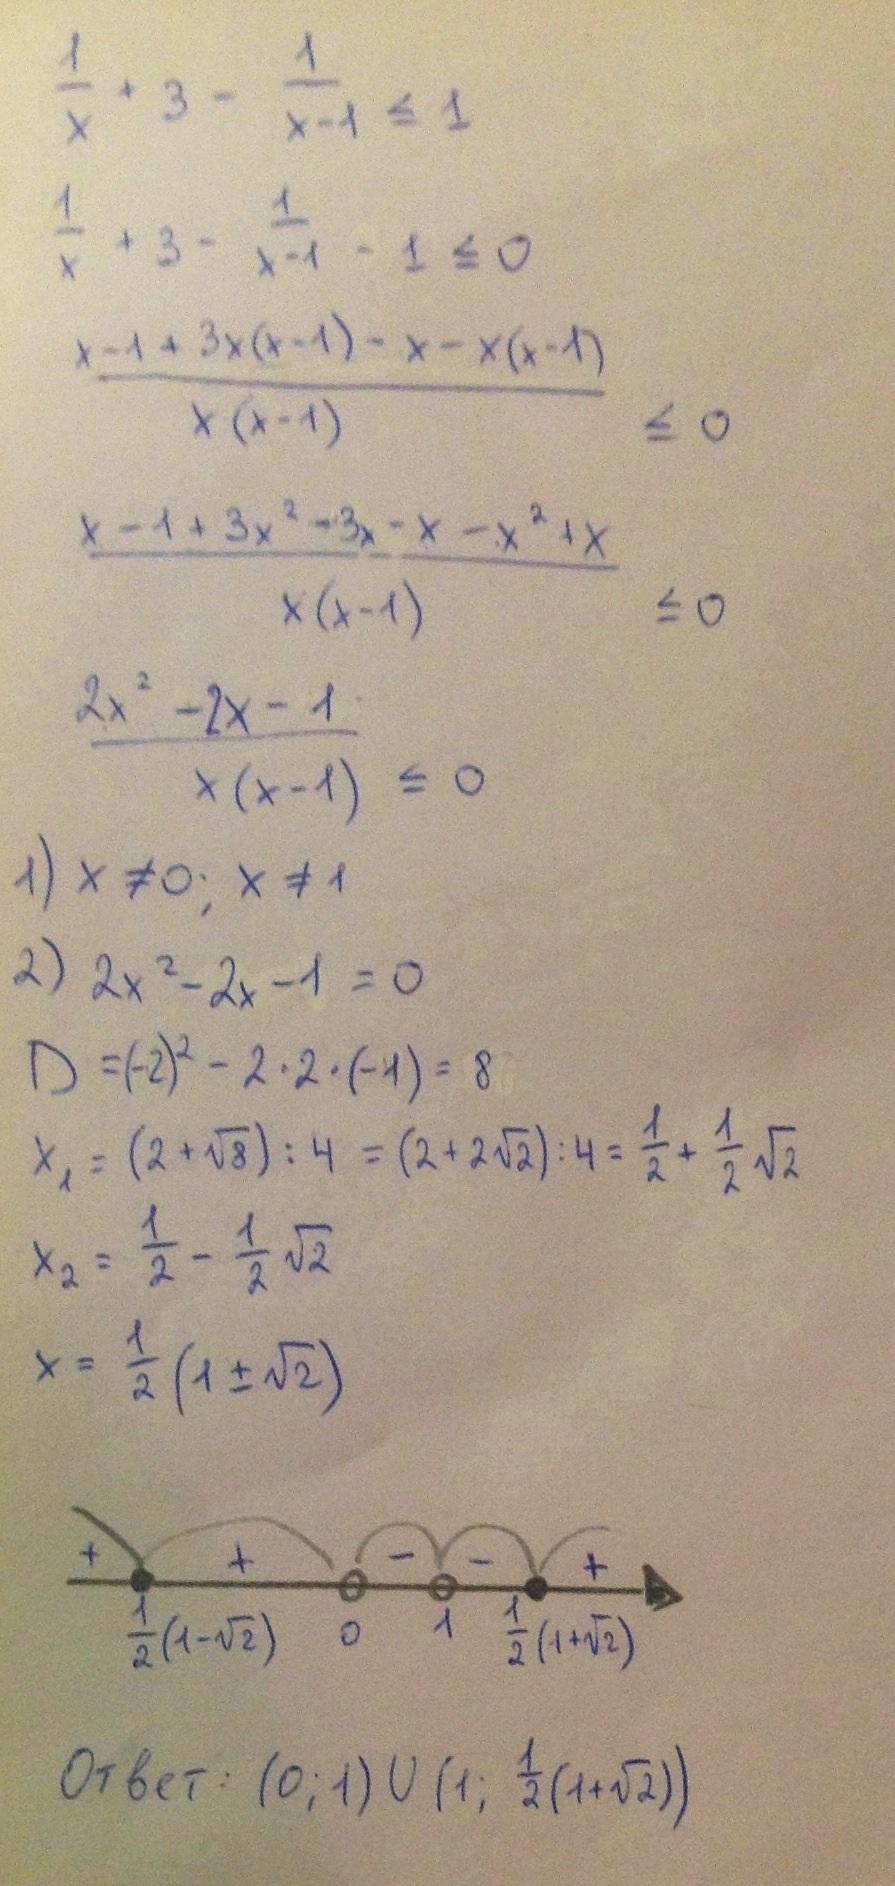 1/x + 3 - 1/(x-1) ≤ 1
1/x + 3 - 1/(x-1) - 1 ≤ 0
(x-1+3x(x-1)-x-x(x-1))/(x(x-1)) ≤ 0
(x-1+3x²-3x-x-x²+x)/(x(x-1)) ≤ 0
(2x²-2x-1)/(x(x-1)) ≤ 0
1) x ≠ 0; x ≠ 1
2) 2x²-2x-1 = 0
D = (-2)² - 2·2·(-1) = 8
x₁ = (2+√8):4 = (2+2√2):4 = 1/2 + 1/2 √2
x₂ = 1/2 - 1/2 √2
x = 1/2 (1±√2)
+ + - - +
1/2(1-√2) 0 1 1/2(1+√2)
Ответ: (0;1) U (1; 1/2(1+√2))